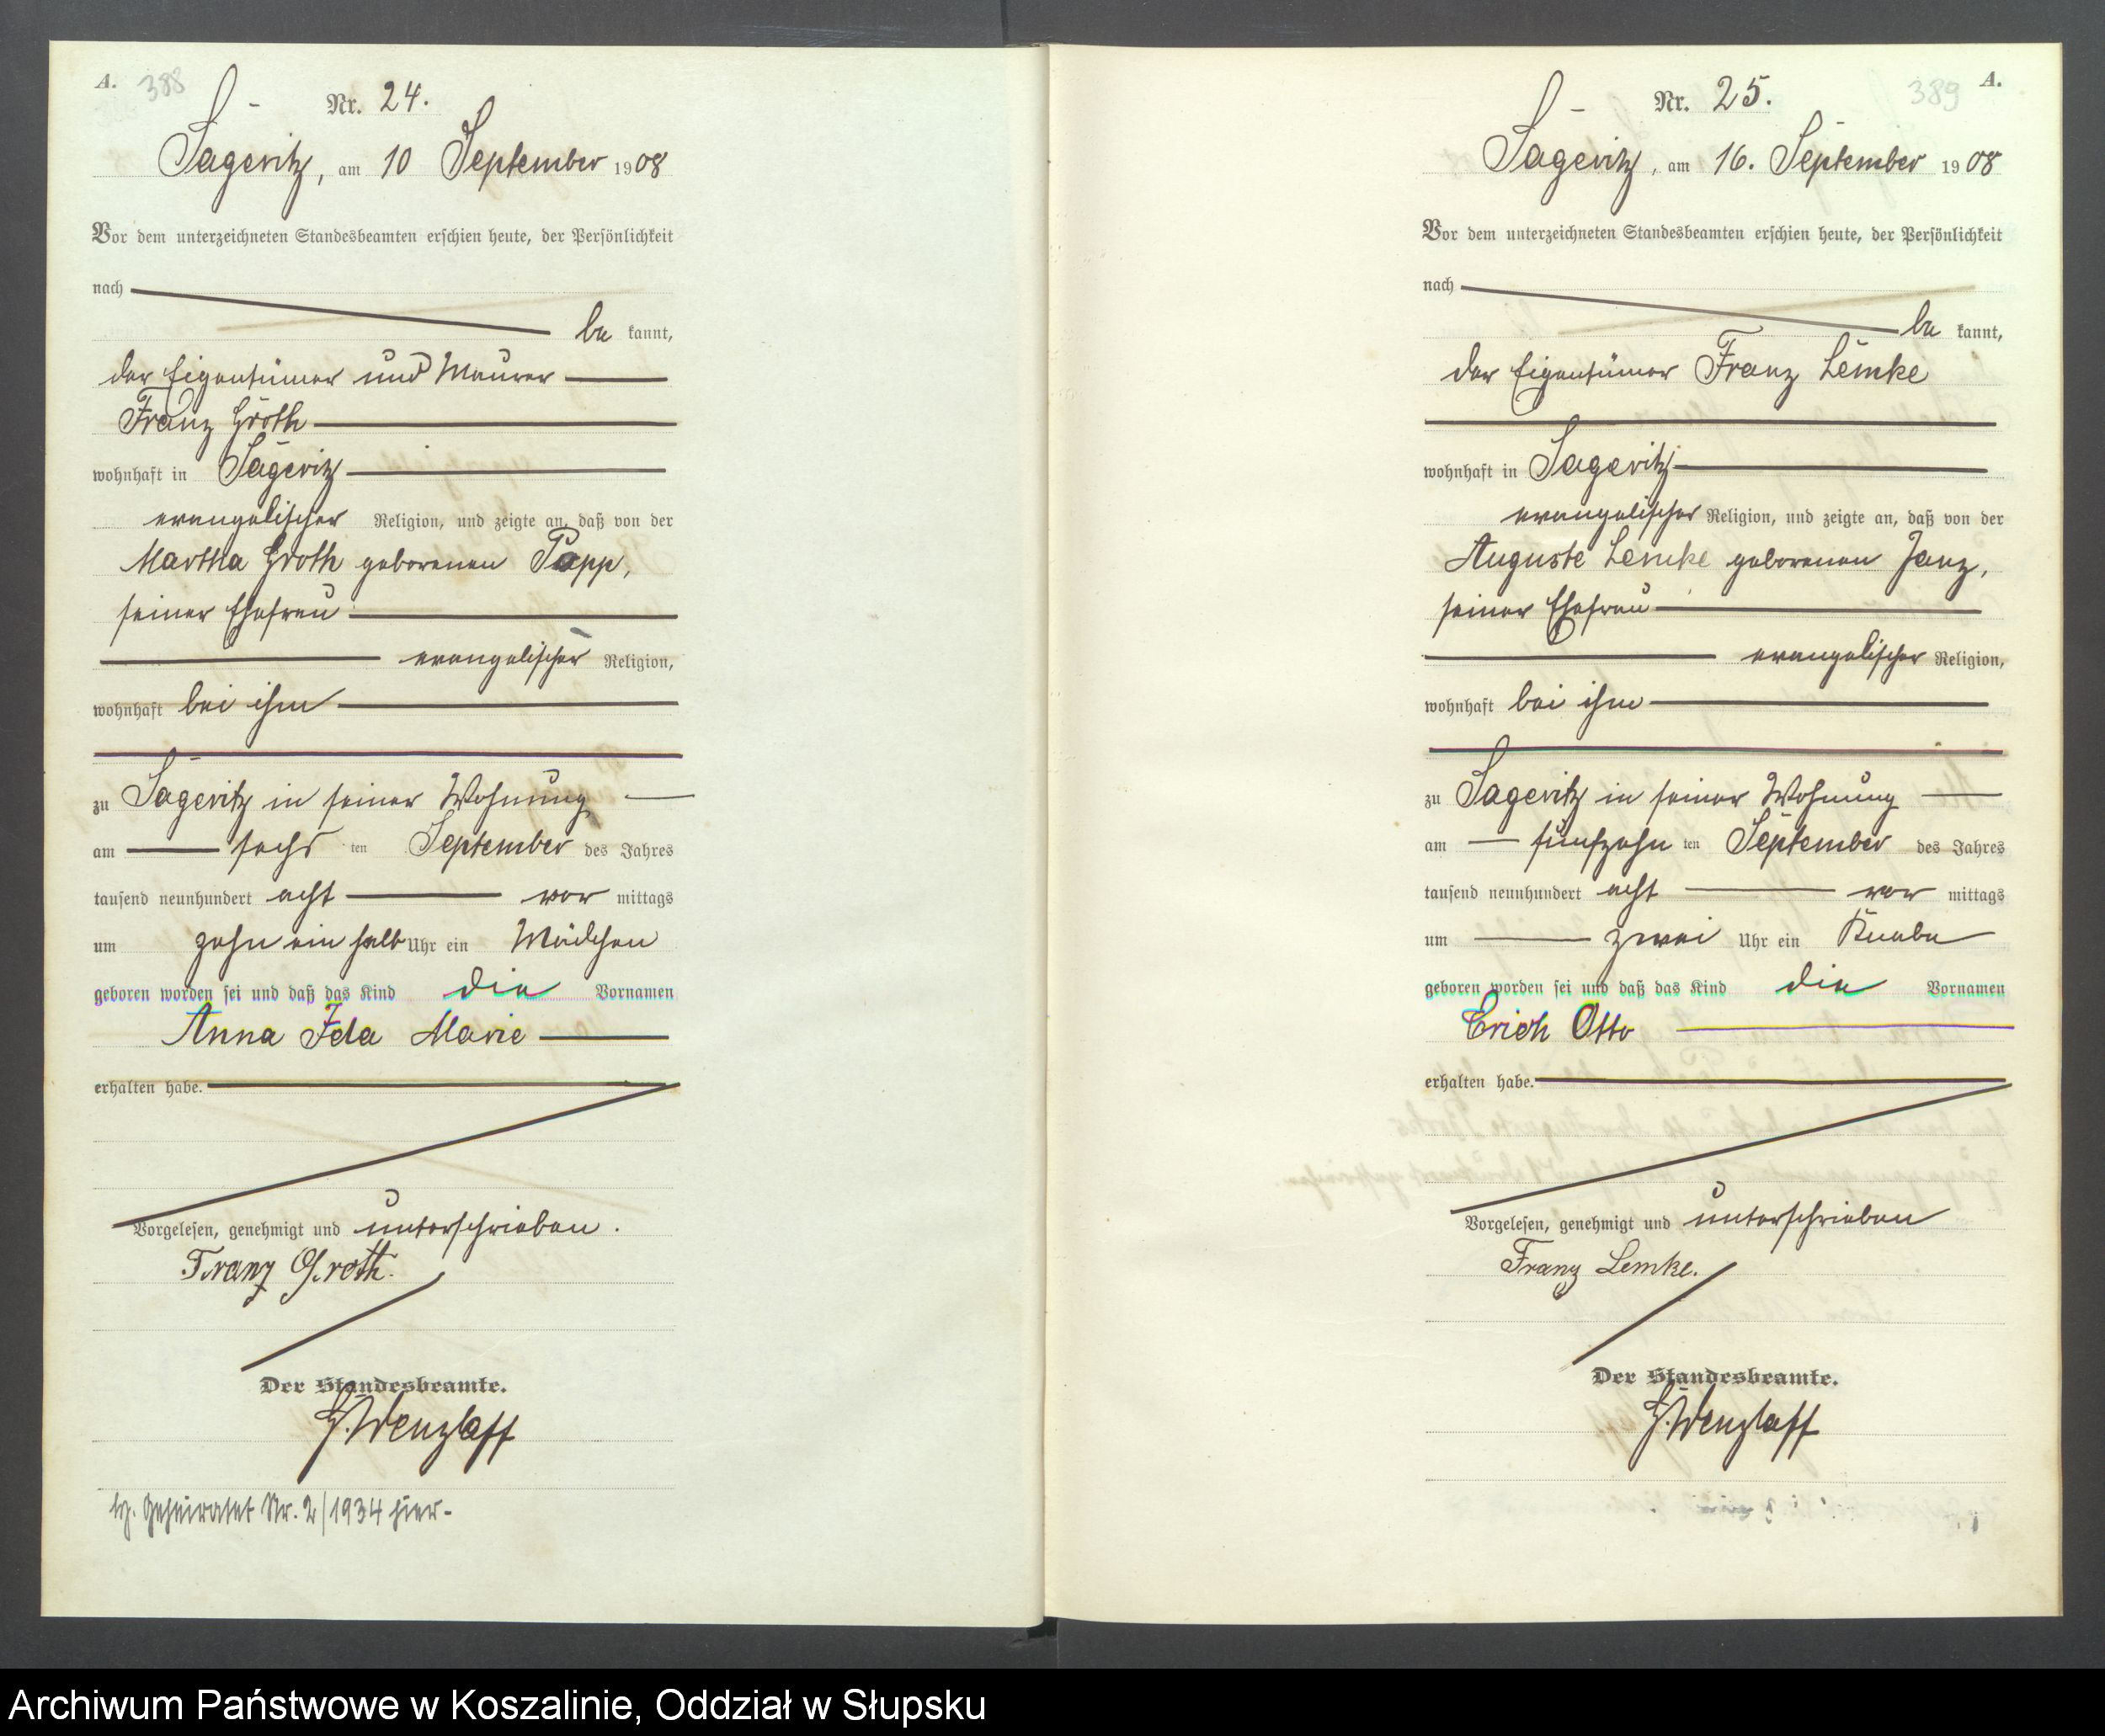 A. 388
Nr. 24.
Sageritz, am 10 September 1908
Vor dem unterzeichneten Standesbeamten erschien heute, der Persönlichkeit
nach
be kannt,
der Eigentümer und Maurer
Franz Groth
wohnhaft in Sageritz
evangelischer Religion, und zeigte an, daß von der
Martha Groth geborenen Papp,
seiner Ehefrau
evangelischer Religion,
wohnhaft bei ihm
zu Sageritz in seiner Wohnung
am sechs ten September des Jahres
tausend neunhundert acht vor mittags
um zehn ein halb Uhr ein Mädchen
geboren worden sei und daß das Kind die Vornamen
Anna Ida Marie
erhalten habe.
Vorgelesen, genehmigt und unterschrieben.
Franz Groth.
Der Standesbeamte.
Wenzlaff
Geheiratet Nr. 2/1934 hier-
389 A.
Nr. 25.
Sageritz, am 16. September 1908
Vor dem unterzeichneten Standesbeamten erschien heute, der Persönlichkeit
nach
be kannt,
der Eigentümer Franz Lemke
wohnhaft in Sageritz
evangelischer Religion, und zeigte an, daß von der
Auguste Lemke geborenen Janz,
seiner Ehefrau
evangelischer Religion,
wohnhaft bei ihm
zu Sageritz in seiner Wohnung
am fünfzehn ten September des Jahres
tausend neunhundert acht vor mittags
um zwei Uhr ein Knabe
geboren worden sei und daß das Kind die Vornamen
Erich Otto
erhalten habe.
Vorgelesen, genehmigt und unterschrieben
Franz Lemke.
Der Standesbeamte.
Wenzlaff
Archiwum Państwowe w Koszalinie, Oddział w Słupsku